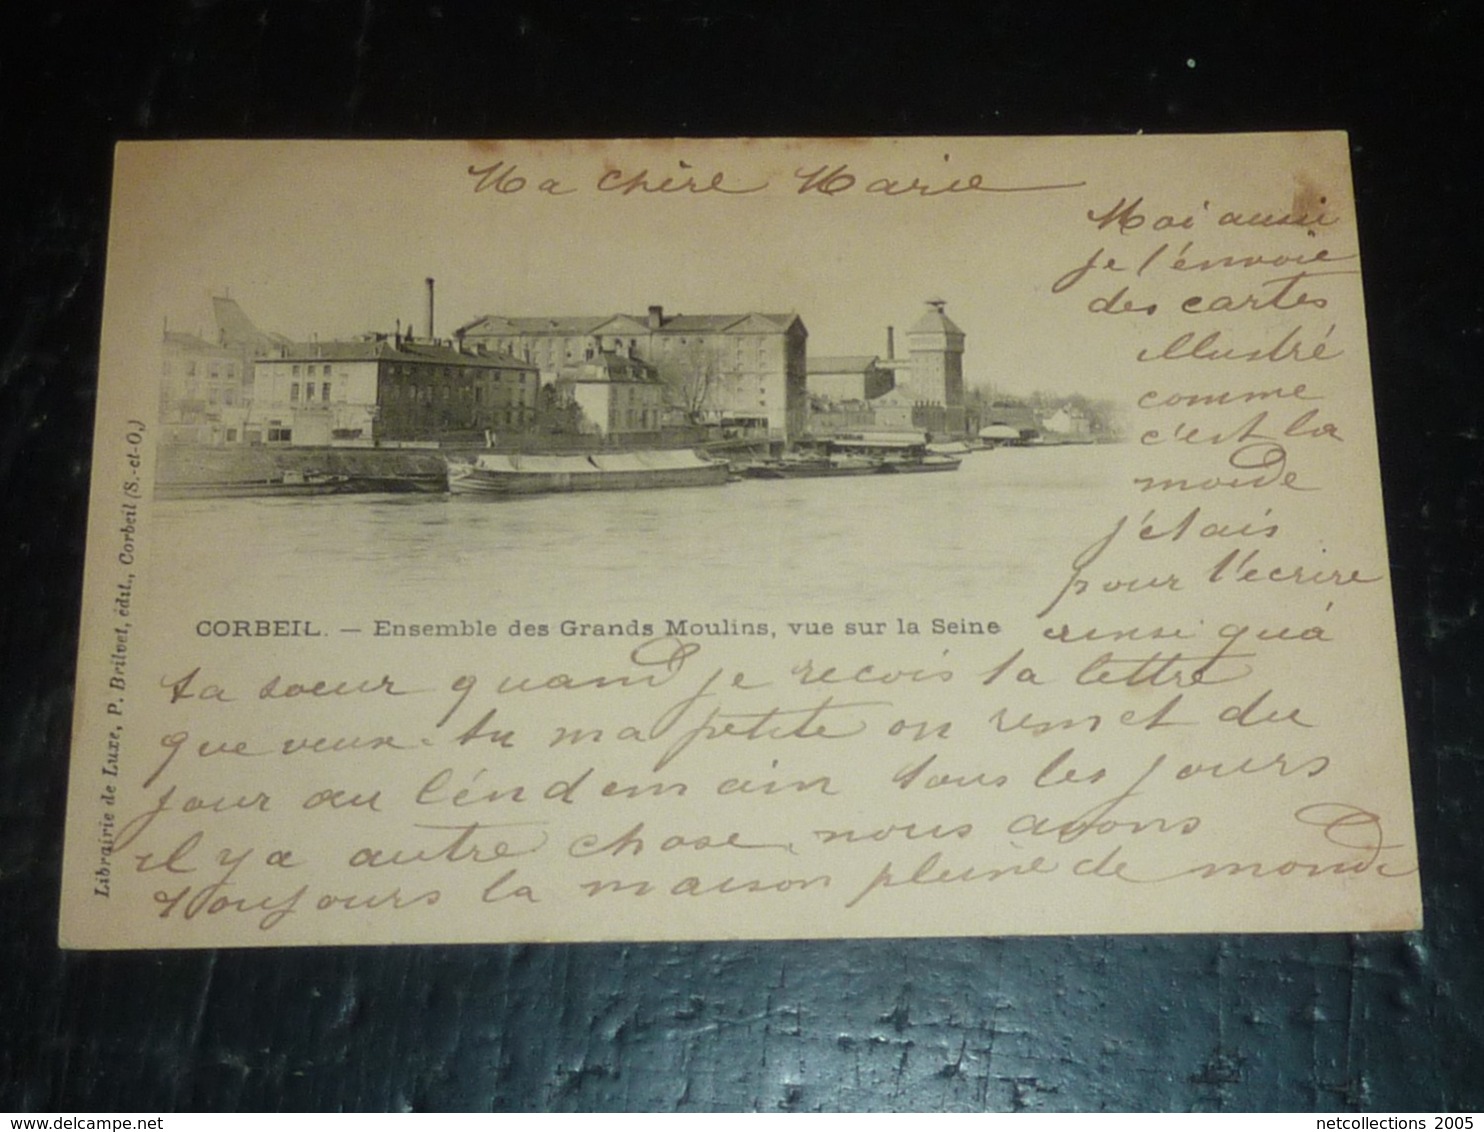 Ma chère Marie
Moi aussi
je t'envoie
des cartes
illustré
comme
c'est la
mode
j'etais
pour t'ecrire
ainsi qu'á
ta soeur quand je recois ta lettre
que veux-tu ma petite on remet du
jour au léndemain tous les jours
il y a autre chose, nous avons
toujours la maison pleine de monde
CORBEIL. — Ensemble des Grands Moulins, vue sur la Seine
Librairie de Luxe, P. Brilvet, édit., Corbeil (S.-et-O.)
netcollections 2005